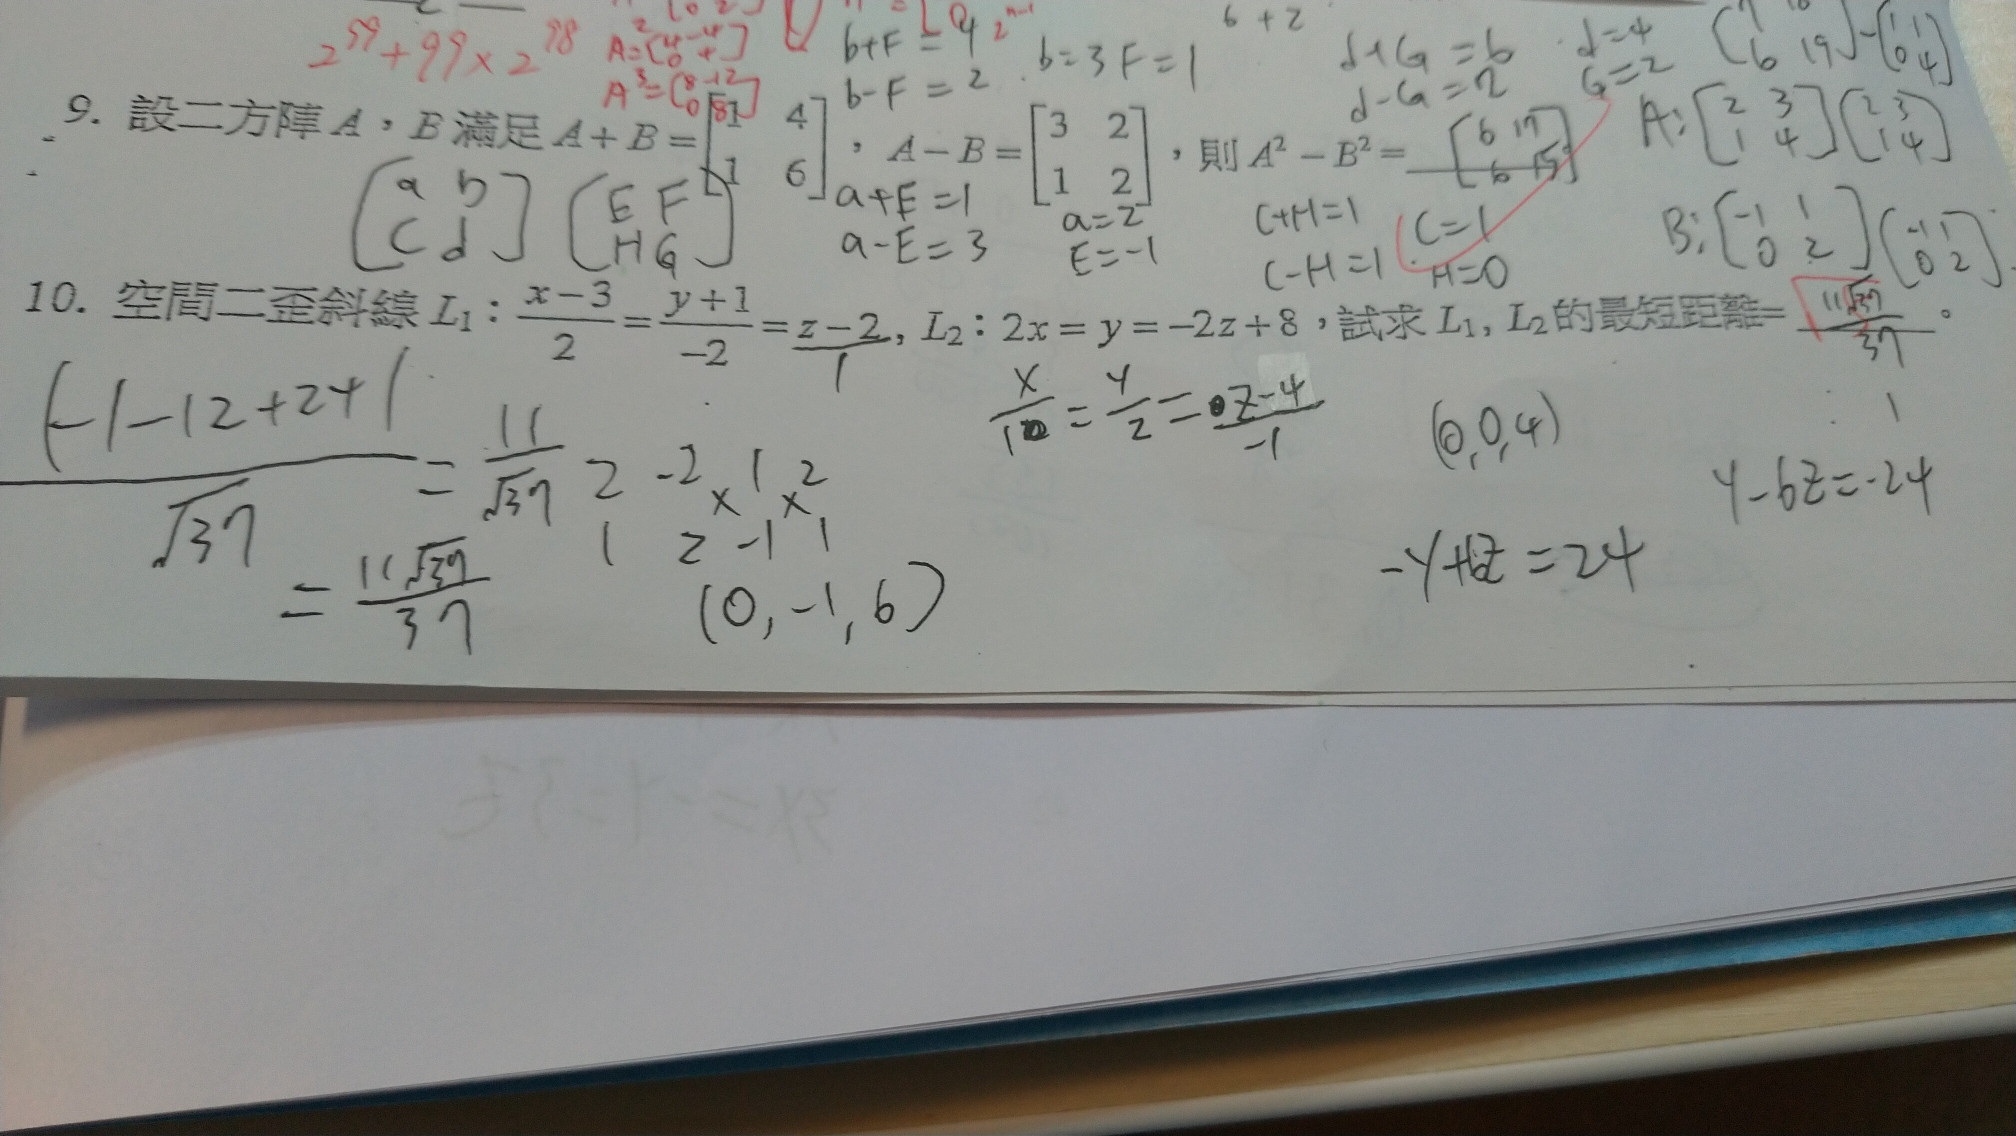 2^99 + 99 × 2^98
A^2 = [4 -4 0 4]
A^3 = [8 -12 0 8]
b+F = 4
b-F = 2
b=3 F=1
6+2
d+G = 6
d-G = 2
d=4
G=2
9. 設二方陣 A，B 滿足 A + B = [1 4 1 6]，A − B = [3 2 1 2]，則 A² − B² = [6 17 6 15]
A: [2 3 1 4] [2 3 1 4]
[a b c d] [E F H G]
a+E = 1
a-E = 3
a=2
E=-1
C+H=1
C-H=1
C=1
H=0
B: [-1 1 0 2] [-1 1 0 2]
10. 空間二歪斜線 L₁ : (x−3)/2 = (y+1)/−2 = z−2, L₂ : 2x = y = −2z+8，試求 L₁, L₂ 的最短距離= 11√37/37 。
1
|-1-12+24|/√37 = 11/√37
= 11√37/37
2 -2 1 2
1 2 -1 1
(0, -1, 6)
x/1 = y/2 = z-4/-1
(0,0,4)
1
y-6z=-24
-y+6z=24